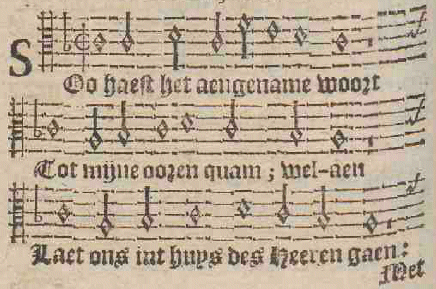 SOo haest het aengename woort
Tot mijne ooren quam; wel-aen
Laet ons int huys des Heeren gaen:
Met